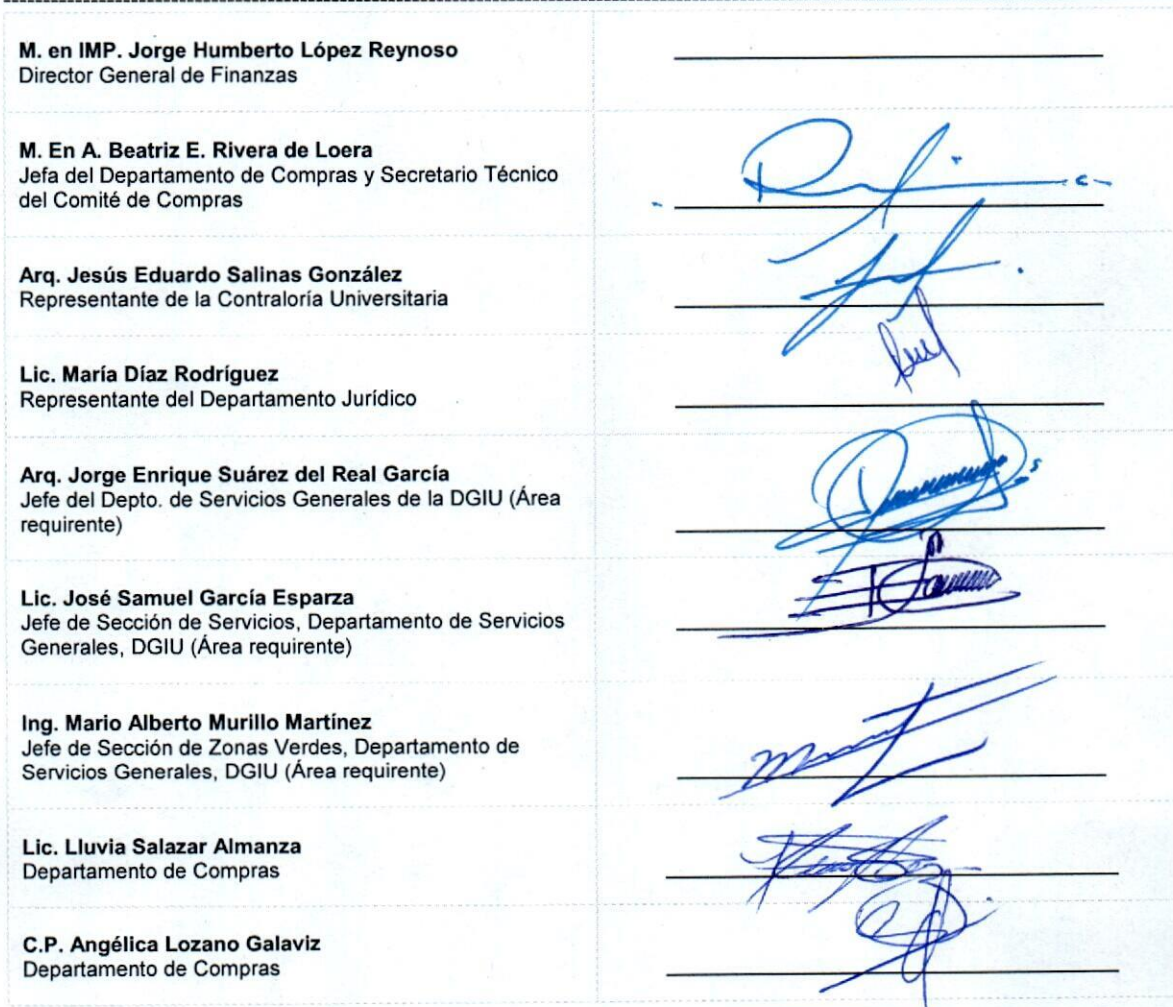 M. en IMP. Jorge Humberto López Reynoso
Director General de Finanzas
M. En A. Beatriz E. Rivera de Loera
Jefa del Departamento de Compras y Secretario Técnico
del Comité de Compras
Arq. Jesús Eduardo Salinas González
Representante de la Contraloría Universitaria
Lic. María Díaz Rodríguez
Representante del Departamento Jurídico
Arq. Jorge Enrique Suárez del Real García
Jefe del Depto. de Servicios Generales de la DGIU (Área
requirente)
Lic. José Samuel García Esparza
Jefe de Sección de Servicios, Departamento de Servicios
Generales, DGIU (Área requirente)
Ing. Mario Alberto Murillo Martínez
Jefe de Sección de Zonas Verdes, Departamento de
Servicios Generales, DGIU (Área requirente)
Lic. Lluvia Salazar Almanza
Departamento de Compras
C.P. Angélica Lozano Galaviz
Departamento de Compras